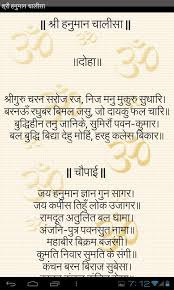 श्री हनुमान चालीसा
|| श्री हनुमान चालीसा ||
||दोहा||
श्रीगुरु चरन सरोज रज, निज मनु मुकुरु सुधारि।
बरनऊँ रघुबर बिमल जसु, जो दायकु फल चारि॥
बुद्धिहीन तनु जानिके, सुमिरौं पवन-कुमार।
बल बुद्धि बिद्या देहु मोहिं, हरहु कलेस बिकार॥
|| चौपाई ||
जय हनुमान ज्ञान गुन सागर।
जय कपीस तिहुँ लोक उजागर॥
रामदूत अतुलित बल धामा।
अंजनि-पुत्र पवनसुत नामा॥
महाबीर बिक्रम बजरंगी।
कुमति निवार सुमति के संगी॥
कंचन बरन बिराज सुबेसा।
7:12